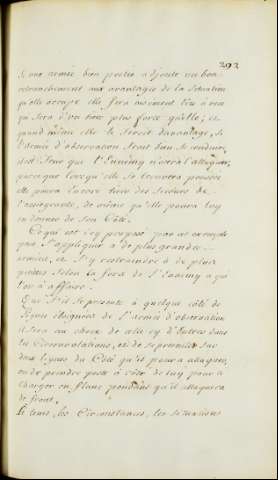 292
Si une armée bien postée adjoute un bon
retranchement aux avantages de la situation
qu'elle occupe elle sera moins en
qui sera d'un tiers plus forte qu'elle; et
quand même elle le seroit davantage, si
l'armée d'observation se conduire
doit Sur que l'Ennemy n'osera l'attaquer,
parceque lorsqu'elle se trouvera pressée
elle pourra encore tirer des secours de
l'assiegeante, de même qu'elle pourra luy
en donner de son Côté.
Ce qui est icy proposé par cet exemple
peut s'appliquer à de plus grandes
armées, et s'y restraindre à de plus
petites selon la force de l'Ennemy à qui
l'on a affaire.
Que s'il se presente à quelque côté de
lignes éloignées de l'armée d'observation
il sera au choix de celle cy d'Entrer dans
les Circonvalations, et de se presenter sur
les lignes du Côté qu'il pourra attaquer,
ou de prendre poste à côté de luy pour le
charger en flanc pendant qu'il attaquera
de front.
Le tems, les Circonstances, les situations